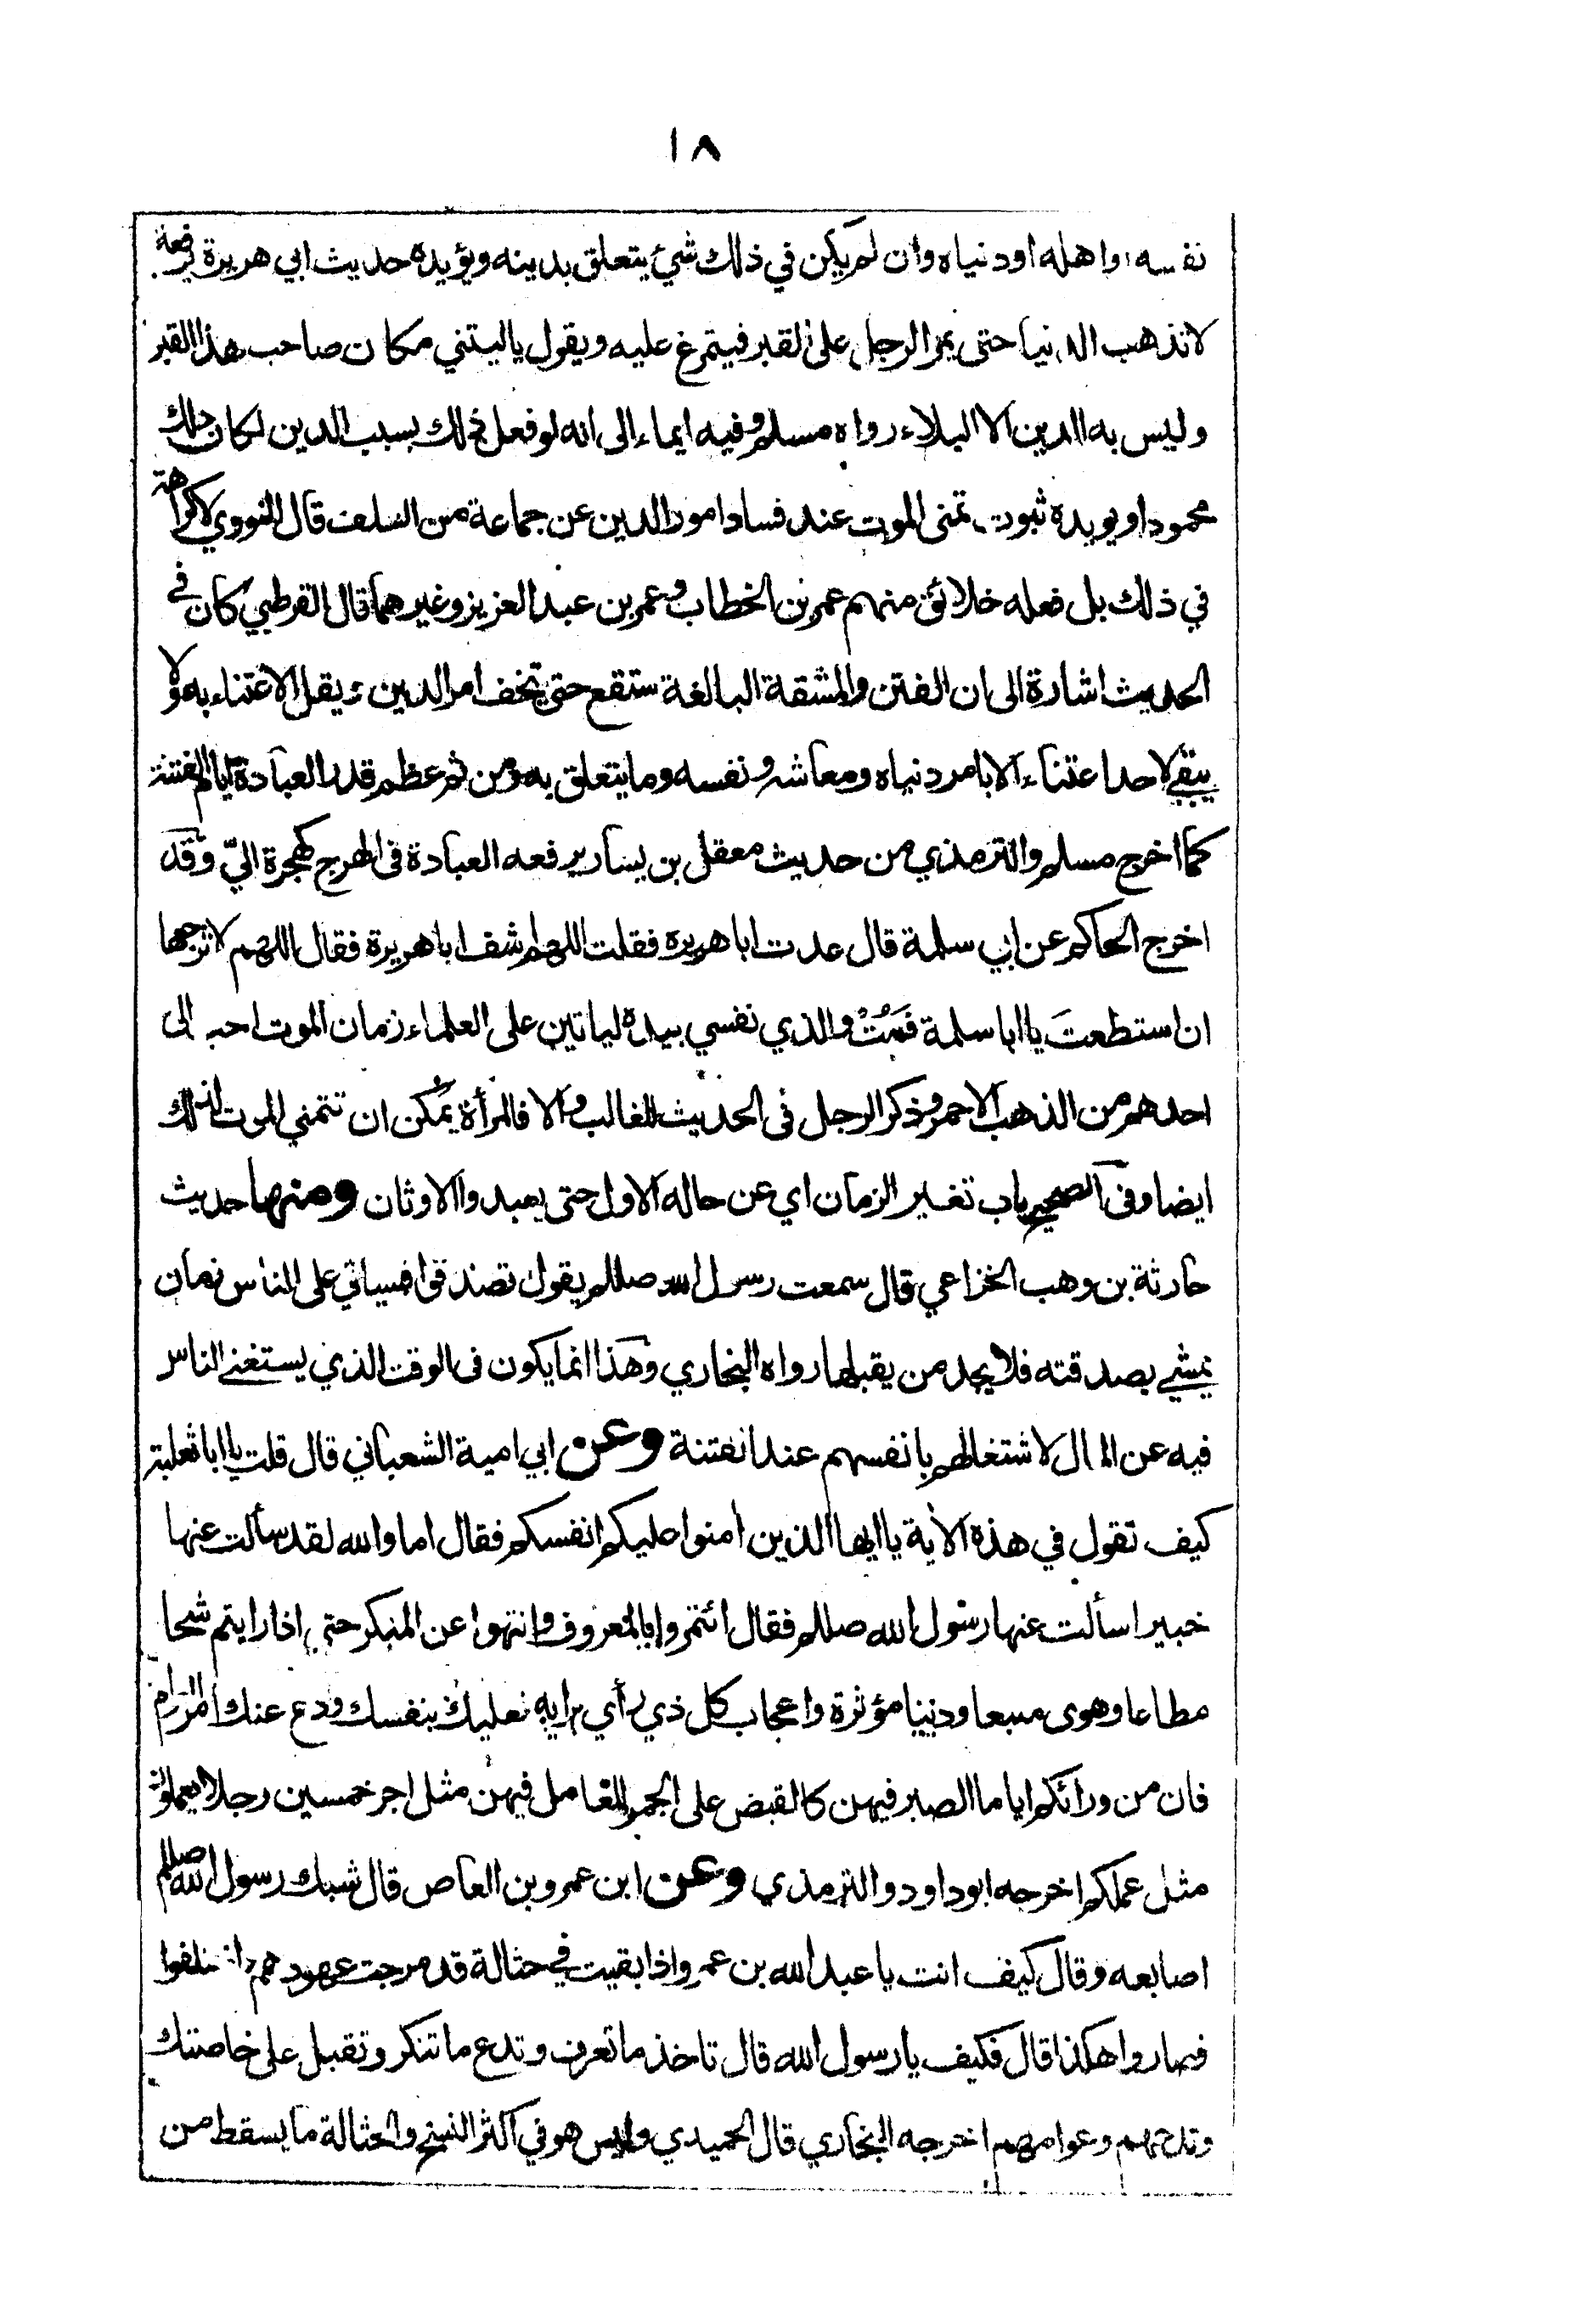 ١٨
نفسه او اهله او دنياه وان لم يكن في ذلك شيء يتعلق بدينه ويؤيده حديث ابي هريرة يرفعه
لا تذهب الدنيا حتى يمر الرجل على القبر فيتمرغ عليه ويقول ياليتني مكان صاحب هذا القبر
وليس به الدين الا البلاء رواه مسلم وفيه ايماء الى انه لو فعل ذلك بسبب الدين لكان ذلك
محمودا ويويده ثبوت تمنى الموت عند فساد امور الدين عن جماعة من السلف قال النووي لا كراهة
في ذلك بل فعله خلائق منهم عمر بن الخطاب وعمر بن عبد العزيز وغيرهما قال القرطبي كان في
الحديث اشارة الى ان الفتن والمشقة البالغة ستقع حتى يخف امر الدين ويقل الاعتناء به ولا
يبقى لاحد اعتناء الا بامر دنياه ومعاشه ونفسه وما يتعلق به ومن ثم عظم قدر العبادة ايام الفتنة
كما اخرج مسلم والترمذي من حديث معقل بن يسار يرفعه العبادة فى الهرج كهجرة اليّ وقد
اخرج الحاكم عن ابي سلمة قال عدت ابا هريرة فقلت اللهم اشف ابا هريرة فقال اللهم لا ترجعها
ان استطعتَ يا ابا سلمة فَمُتْ والذي نفسي بيده لياتين على العلماء زمان الموت احب الى
احدهم من الذهب الاحمر وذكر الرجل فى الحديث للغالب والا فالمرأة يمكن ان تتمني الموت لذلك
ايضا وفى الصحيح باب تغير الزمان اي عن حاله الاول حتى يعبدوا الاوثان ومنها حديث
حارثة بن وهب الخزاعي قال سمعت رسول الله صللم يقول تصدقوا فسياتي على الناس زمان
يمشي بصدقته فلا يجد من يقبلها رواه البخاري وهذا انما يكون فى الوقت الذي يستغني الناس
فيه عن المال لاشتغالهم بانفسهم عند الفتنة وعن ابي امية الشعباني قال قلت يا ابا ثعلبة
كيف تقول في هذه الآية يا ايها الذين امنوا عليكم انفسكم فقال اما والله لقد سألت عنها
خبيرا سألت عنها رسول الله صللم فقال ائتمروا بالمعروف وانتهوا عن المنكر حتى اذا رايتم شحا
مطاعا وهوى متبعا ودنيا مؤثرة واعجاب كل ذي رأي برايه فعليك بنفسك ودع عنك امر العوام
فان من ورائكم اياما الصبر فيهن كالقبض على الجمر للعامل فيهن مثل اجر خمسين رجلا يعملون
مثل عملكم اخرجه ابو داود والترمذي وعن ابن عمرو بن العاص قال شبك رسول الله صللم
اصابعه وقال كيف انت يا عبد الله بن عمرو اذا بقيت في حثالة قد مرجت عهودهم واختلفوا
فصاروا هكذا قال فكيف يا رسول الله قال تاخذ ما تعرف وتدع ما تنكر وتقبل على خاصتك
وتدعهم وعوامهم اخرجه البخاري قال الحميدي وليس هو في اكثر النسخ والحثالة ما يسقط من